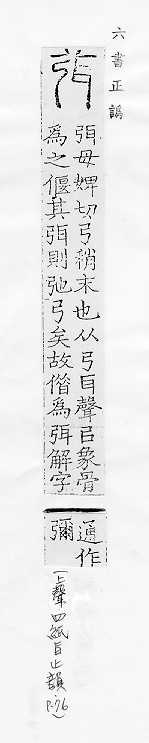 六書正譌
弭
弭母婢切弓稍末也从弓耳聲㠯象骨
為之偃其弭則弛弓矣故借為弭解字
通作
彌
(上聲四紙旨止韻 P.76)